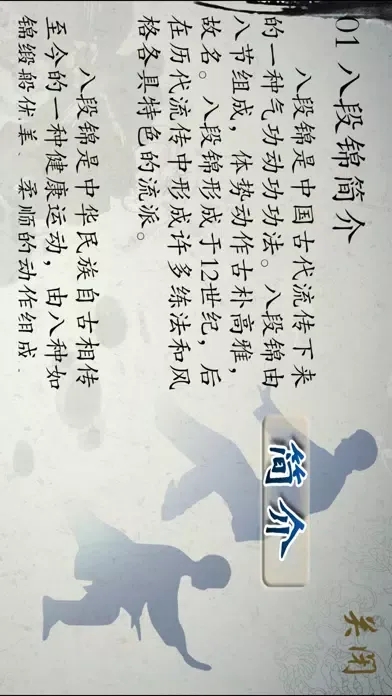 01 八段锦简介
八段锦是中国古代流传下来
的一种气功动功功法。八段锦由
八节组成，体势动作古朴高雅，
故名。八段锦形成于12世纪，后
在历代流传中形成许多练法和风
格各具特色的流派。
八段锦是中华民族自古相传
至今的一种健康运动，由八种如
锦缎般优美、柔顺的动作组成.
简介
关闭